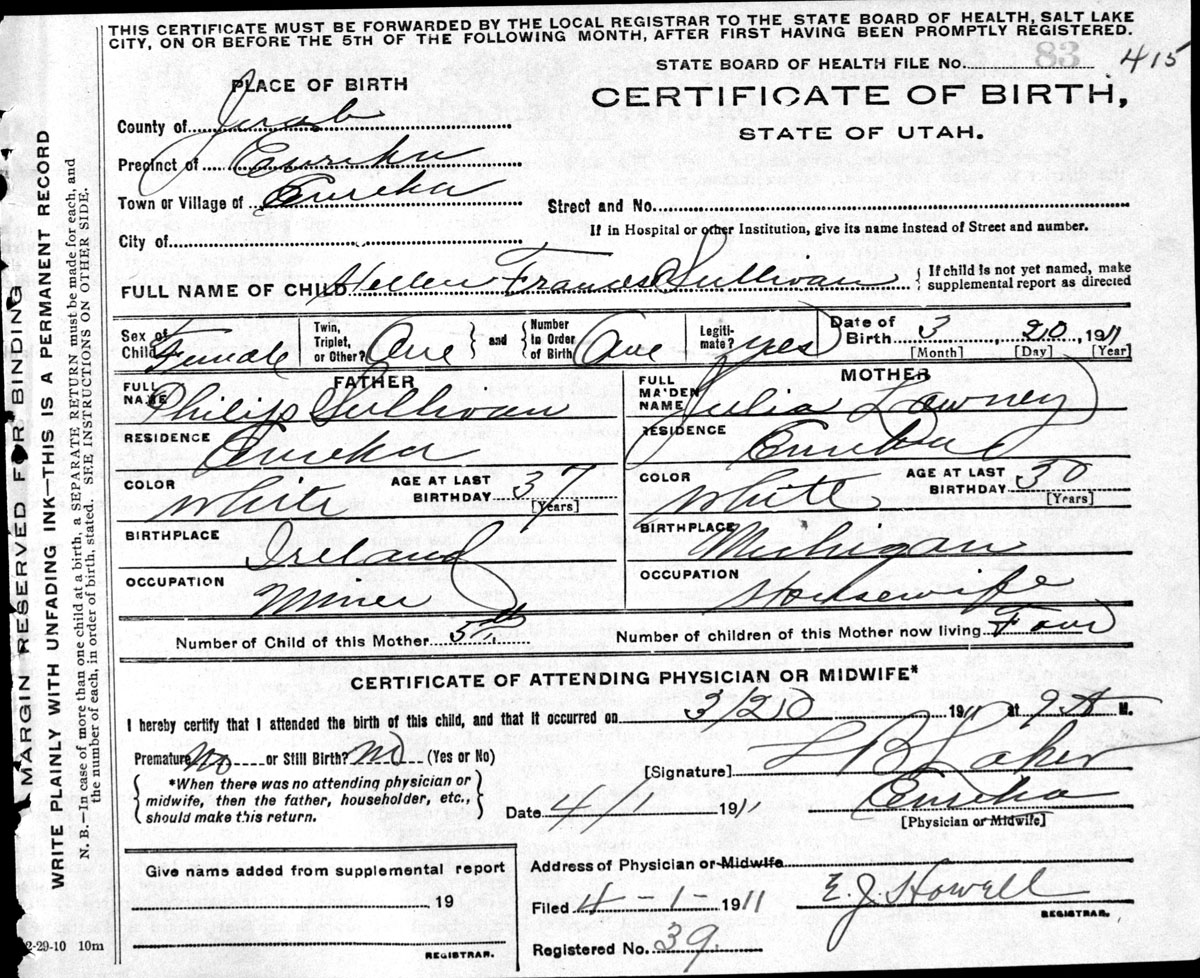 THIS CERTIFICATE MUST BE FORWARDED BY THE LOCAL REGISTRAR TO THE STATE BOARD OF HEALTH, SALT LAKE
CITY, ON OR BEFORE THE 5TH OF THE FOLLOWING MONTH, AFTER FIRST HAVING BEEN PROMPTLY REGISTERED.
STATE BOARD OF HEALTH FILE No. 83 415
PLACE OF BIRTH
CERTIFICATE OF BIRTH,
STATE OF UTAH.
County of Juab
Precinct of Eureka
Town or Village of Eureka
Street and No.
City of
If in Hospital or other Institution, give its name instead of Street and number.
FULL NAME OF CHILD Hellen Frances Sullivan { If child is not yet named, make
supplemental report as directed
Sex of Child Female
Twin, Triplet, or Other? One } and { Number in Order of Birth One
Legitimate? yes
Date of Birth 3 20 1911
[Month] [Day] [Year]
FATHER
FULL NAME Philip Sullivan
RESIDENCE Eureka
COLOR White AGE AT LAST BIRTHDAY 37 [Years]
BIRTHPLACE Ireland
OCCUPATION Miner
MOTHER
FULL MAIDEN NAME Julia Lowney
RESIDENCE Eureka
COLOR White AGE AT LAST BIRTHDAY 30 [Years]
BIRTHPLACE Michigan
OCCUPATION Housewife
Number of Child of this Mother 5th Number of children of this Mother now living Four
CERTIFICATE OF ATTENDING PHYSICIAN OR MIDWIFE*
I hereby certify that I attended the birth of this child, and that it occurred on 3/20 1911 at 9 A M.
Premature No or Still Birth? No (Yes or No)
{ *When there was no attending physician or
midwife, then the father, householder, etc.,
should make this return. }
[Signature] Laker
Date 4/1 1911 Eureka
[Physician or Midwife]
Address of Physician or Midwife
Give name added from supplemental report
19
REGISTRAR.
Filed 4-1-1911 E. J. Howell
REGISTRAR.
Registered No. 39.
2-29-10 10m
MARGIN RESERVED FOR BINDING
WRITE PLAINLY WITH UNFADING INK—THIS IS A PERMANENT RECORD
N. B.—In case of more than one child at a birth, a SEPARATE RETURN must be made for each, and
the number of each, in order of birth, stated. SEE INSTRUCTIONS ON OTHER SIDE.